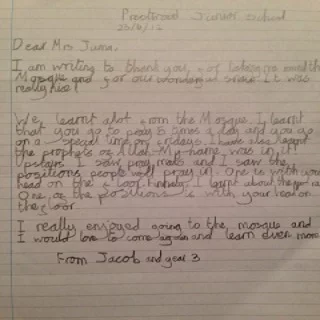 Junior School
Dear Mrs Juma,
I am writing to thank you, for taking us round the
Mosque and for our wonderful It was
really nice!
We, learnt alot from the Mosque. I learnt
that you go to pray 5 times a day and you go
on a special time on fridays. I have also learnt
the prophets of Allah. My name was in it!
I saw pray mats and I saw the
positions people will pray in. One is with your
head on the floor. Finally, I learnt about the
One of the positions is with your head on
the floor.
I really enjoyed going to the mosque and
I would love to come again and learn even more
From Jacob and year 3